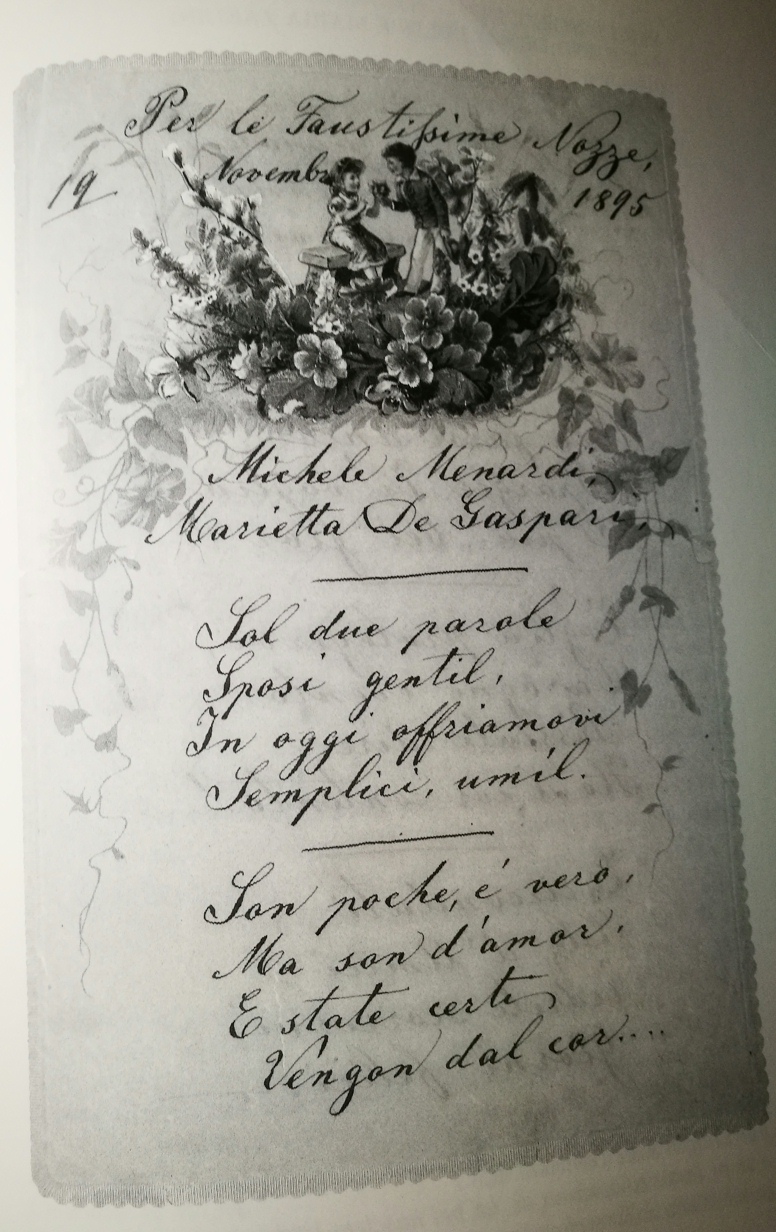 Per le Faustissime Nozze,
19 Novembr 1895
Michele Menardi,
Marietta De Gaspari,
Sol due parole
Sposi gentil,
In oggi offriamovi
Semplici, umil.
Son poche, é vero,
Ma son d'amor,
E state certi
Vengon dal cor....